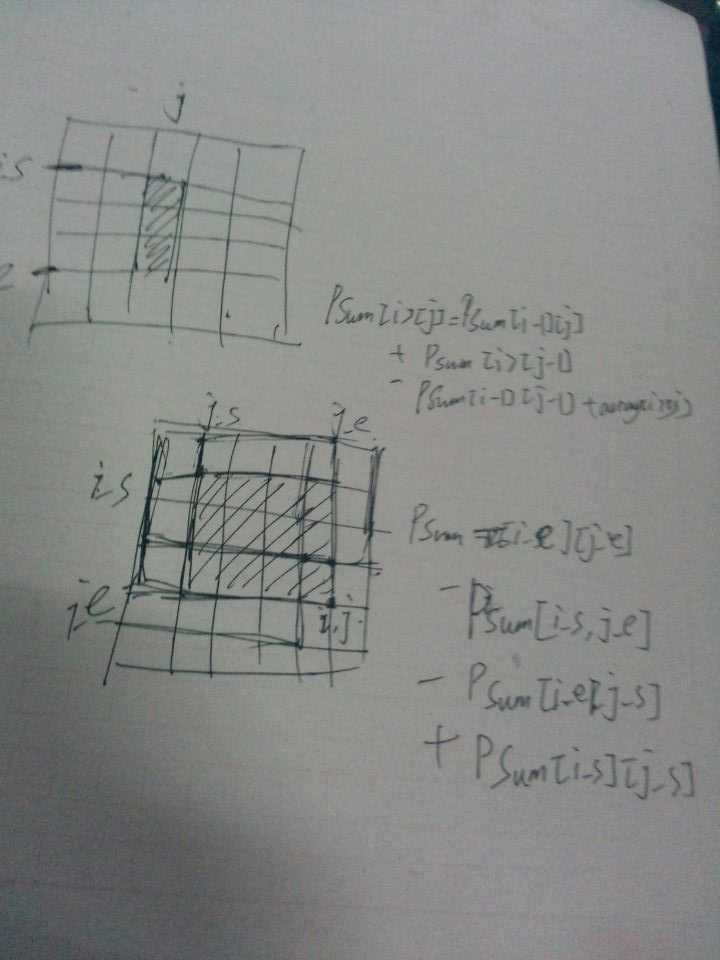 j
i.s
Psum[i][j]=Psum[i-1][j]
+ Psum[i][j-1]
- Psum[i-1][j-1]+array[i][j]
j_s j_e
i_s
Psum [i_e][j_e]
- Psum[i_s,j_e]
i,j
- Psum[i_e][j_s]
+ Psum[i_s][j_s]